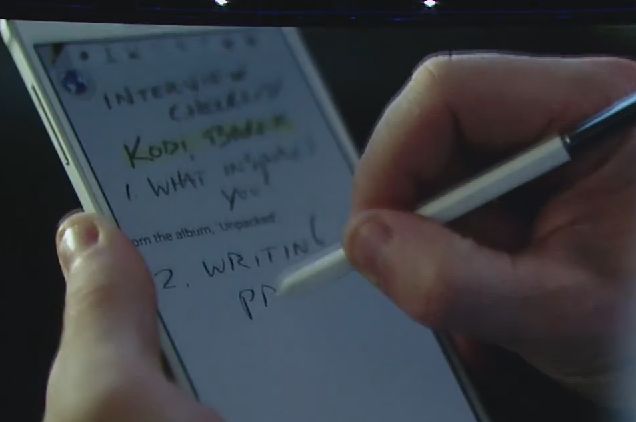 INTERVIEW
CHECKLIST
KODI, BAREK
1. WHAT INSPIRES
YOU?
om the album, 'Unpacked'
2. WRITING
PR